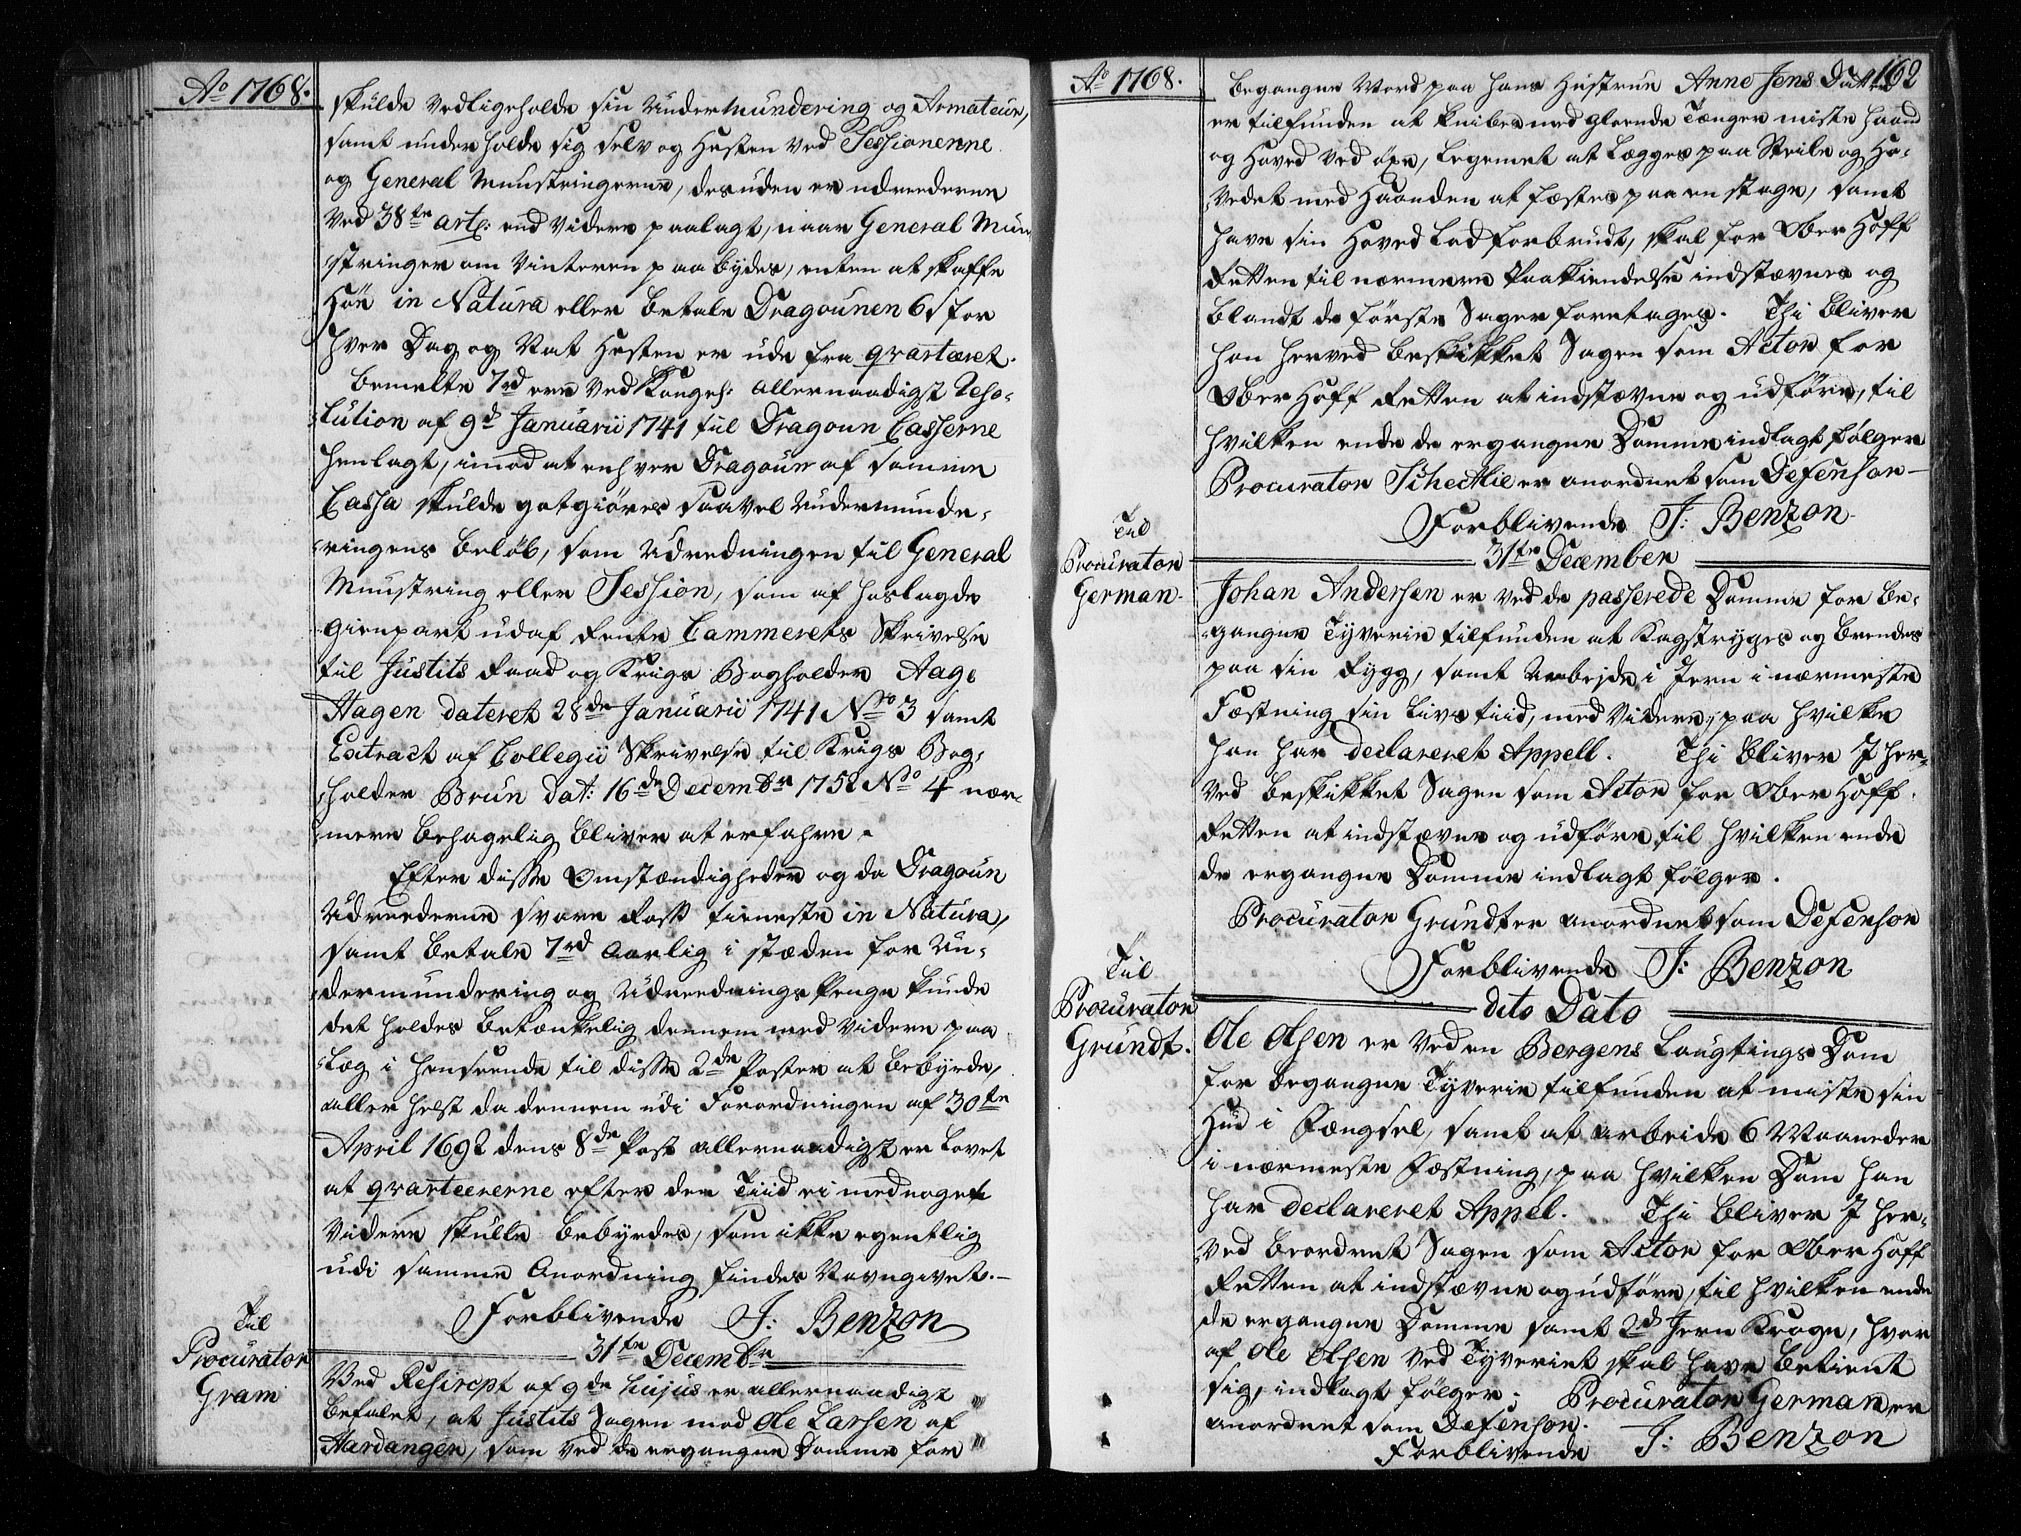 Ao 1768.
skulde vedligeholde sin Under Mundering og Armateur,
samt underholde sig selv og Hesten ved Sessionerne
og General Munstringerne, desuden er udrederne
ved 38te artl: end videre paalagt, naar General Mun-
stringer om Vinteren paabydes, enten at skaffe
Höe in Natura eller betale Dragounen 6 s for
hver Dag og Nat Hesten er ude fra qvarteret.
Bemelte 7 rd ere ved Kongel: allernaadigst Reso-
lution af 9d Januarii 1741 til Dragoun Casserne
henlagt, imod at enhver Dragoun af samme
Cassa skulde gotgiöres saavel Undermunde-
ringens Belöb, som Udredningen til General
Munstring eller Session, som af hoslagde
Gienpart udaf Rente Cammerets Skrivelse
til Justits Raad og Krigs Bogholder Aage
Hagen dateret 28de Januarii 1741 No 3 samt
Extract af Collegii Skrivelse til Krigs Bog-
holder Brun dat: 16de Decembr 1752 No 4 nær-
mere behagelig bliver at erfahre.
Efter disse Omstændigheder og da Dragoun
Udrederne svare Ross tieneste in Natura,
samt betale 7 rd aarlig i stæden for Un-
dermundering og Udredningspenge kunde
det holdes betænkelig dennem med videre paa
læg i henseende til disse 2de Poster at bebyrde,
allerhelst da dennem udi Forordningen af 30te
April 1692 dens 8de Post allernaadigst er lovet
at qvarteererne efter den Tiid ei med noget
videre skulle bebyrdes, som ikke egentlig
udi samme Anordning findes Navngivet.
Forblivende J: Benzon
31te Decembr
Til
Procurator
Gram
Ved Rescript af 9de hujus er allernaadigst
befalet, at Justits Sagen mod Ole Larsen af
Hardanger, som ved de ergangne Domme for
Ao 1768.
162
begangne Mord paa hans Hustrue Anne Jens Datter
er tilfunden at knibes med gloende Tænger miste Haand
og Hoved ved öxe, Legemet at lægges paa Steile og Ho-
vedet med Haanden at fæstes paa en stage, samt
have sin Hoved Lod forbrudt, skal for Ober Hoff
Retten til nærmere Paakiendelse indstævnes og
blandt de förste Sager foretages. Thi bliver
han herved beskikket Sagen som Actor for
Ober Hoff Retten at indstævne og udföre, til
hvilken ende de ergangne Domme indlagt fölger
Procurator Schectlie er anordnet som Defensor
Forblivende J: Benzon
31te December
Til
Procurator
German
Johan Andersen er ved de passerede Domme for be-
gangne Tyverie tilfunden at Kagstryges og brendes
paa sin Rygg, samt Arbejde i Jern i nærmeste
Fæstning sin Livs tiid, med videre, paa hvilke
han har declareret Appell. Thi bliver I her-
ved beskikket Sagen som Actor for Ober Hoff
Retten at indstævne og udföre, til hvilken ende
de ergangne Domme indlagt fölger.
Procurator Grundt er anordnet som Defensor
Forblivende J: Benzon
dito Dato
Til
Procurator
Grundt.
Ole Olsen er ved en Bergens Laugtings Dom
for begangne Tyverie tilfunden at miste sin
Hud i Fængsel, samt at arbeide 6 Maaneder
i nærmeste Fæstning, paa hvilken Dom han
har declareret Appel. Thi bliver I her-
ved beordret Sagen som Actor for Ober Hoff
Retten at indstævne og udföre, til hvilken ende
de ergangne Domme samt 2d Jern Kroge, hvor
af Ole Olsen ved Tyveriet skal have betient
sig, indlagt fölger; Procurator German er
anordnet som Defensor.
Forblivende J: Benzon